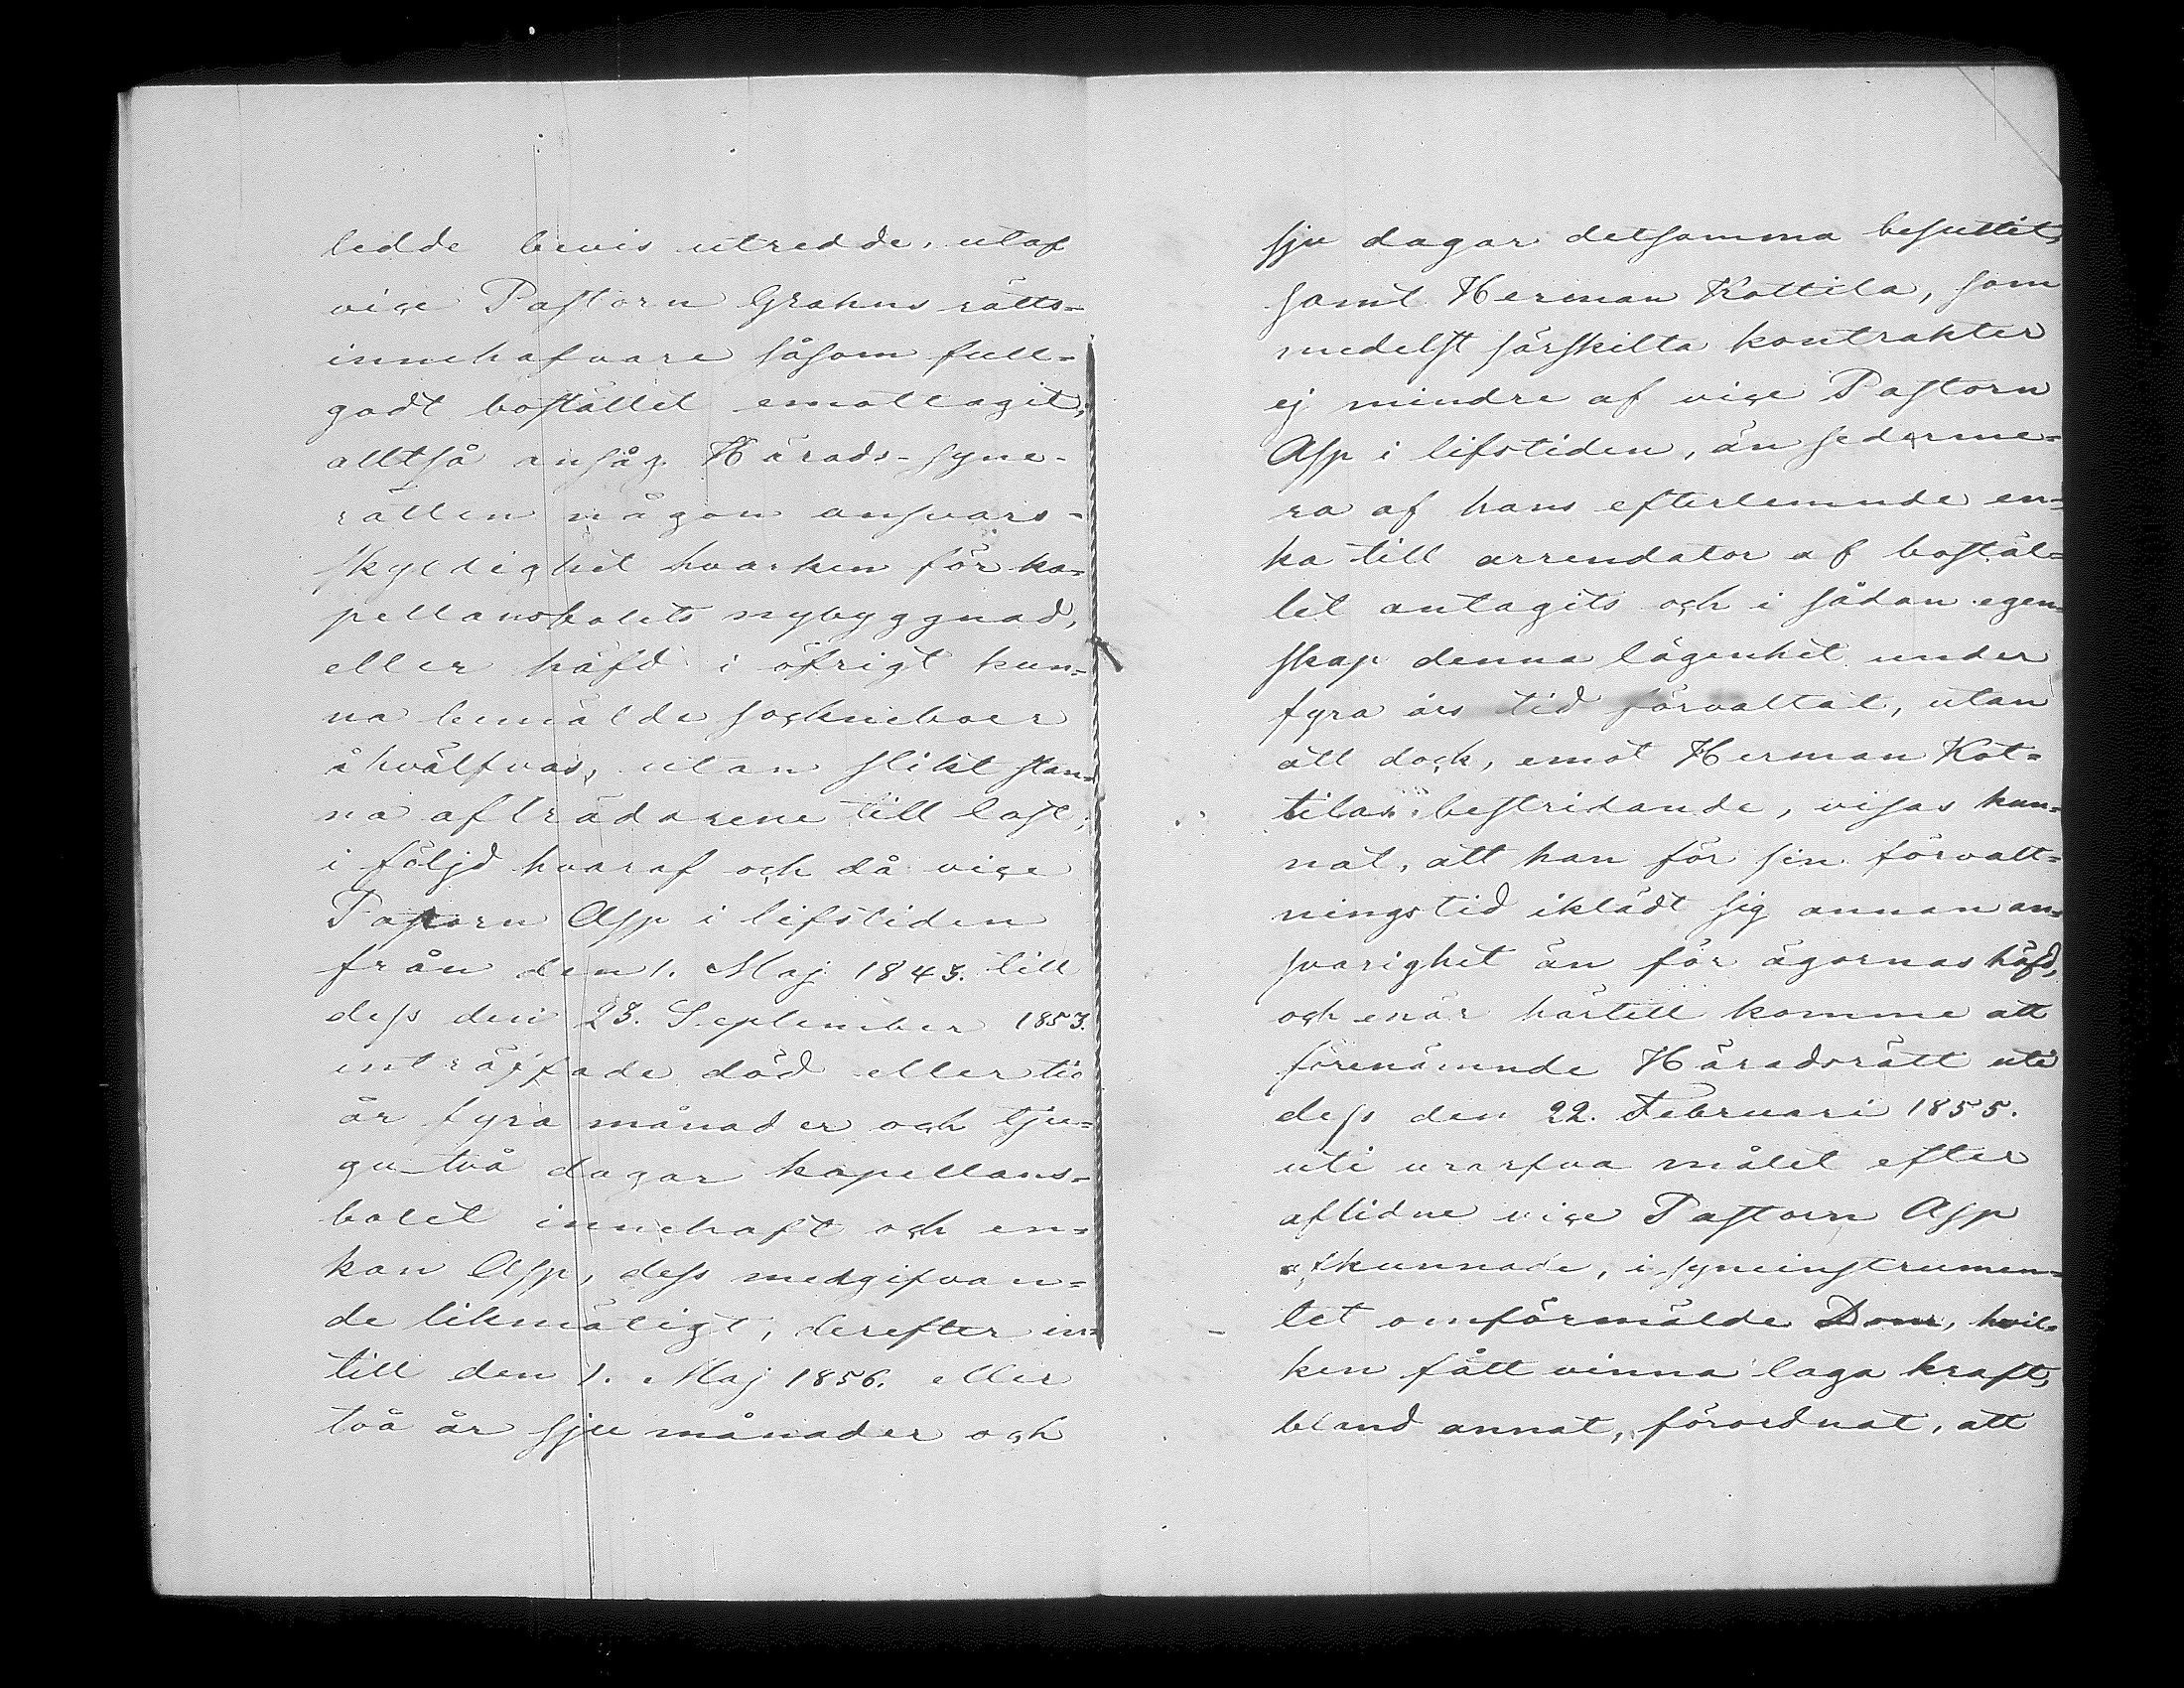 ledde bevis utredde, utaf
viçe Pastorn Grahns rätts-
innehafvare såsom full-
godt bostället emottagit,
alltså ansåg Härads-syne-
rätten någon ansvars-
skyldighet hvarken för ka-
pellansbolets nybyggnad,
eller häfd i öfrigt kun-
na bemälde sockneboer
åhvälfvas, utan slikt stan-
na afträdarene till last;
i följd hvaraf och då viçe
Pastorn Asp i lifstiden
från den 1. Maj 1843. till
dess den 23. September 1853.
inträffade död eller tio
år fyra månader och tju-
gu två dagar kapellans-
bolet innehaft och en-
kan Asp, dess medgifvan-
de likmätigt, derefter in-
till den 1. Maj 1856. eller
två år sju månader och
sju dagar detsamma besuttit,
samt Herman Kottila, som
medelst särskilta kontrakter
ej mindre af viçe Pastorn
Asp i lifstiden, än sederme-
ra af hans efterlemnde en-
ka till arrendator af bostäl-
let antagits och i sådan egen-
skap denna lägenhet under
fyra års tid förvaltat, utan
att dock, emot Herman Kot-
tilas bestridande, visas kun-
nat, att han för sin förvalt-
ningstid iklädt sig annan an-
svarighet än för ägornas häfd,
och enär härtill komme att
förenämnde Häradsrätt uti
dess den 22. Februari 1855.
uti urarfva målet efter
aflidne viçe Pastorn Asp
afkunnade, i syneinstrumen-
tet omförmälde Dom, hvil-
ken fått vinna laga kraft,
bland annat, förordnat, att